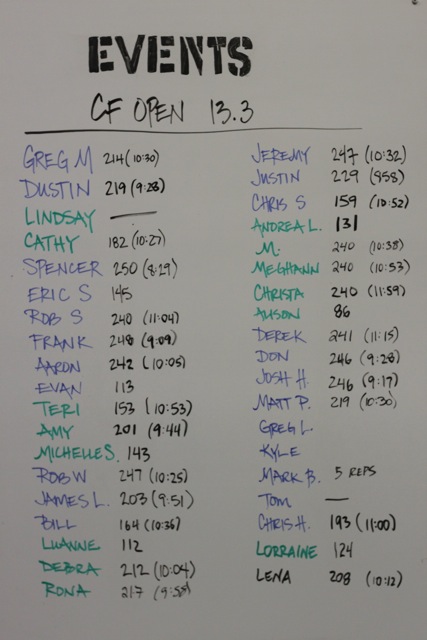 EVENTS
CF OPEN 13.3
GREG M 214 (10:30)
DUSTIN 219 (9:28)
LINDSAY —
CATHY 182 (10:27)
SPENCER 250 (8:29)
ERIC S 145
ROB S 240 (11:04)
FRANK 248 (9:09)
AARON 242 (10:05)
EVAN 113
TERI 153 (10:53)
AMY 201 (9:44)
MICHELLE S. 143
ROB W 247 (10:25)
JAMES L. 203 (9:51)
BILL 164 (10:36)
LUANNE 112
DEBRA 212 (10:04)
RONA 217 (9:58)
JEREMY 247 (10:32)
JUSTIN 229 (958)
CHRIS S 159 (10:52)
ANDREA L. 131
M. 240 (10:38)
MEGHANN 240 (10:53)
CHRISTA 240 (11:59)
ALISON 86
DEREK 241 (11:15)
DON 246 (9:28)
JOSH H. 246 (9:17)
MATT P. 219 (10:30)
GREG L.
KYLE
MARK B. 5 REPS
TOM —
CHRIS H. 193 (11:00)
LORRAINE 124
LENA 208 (10:12)